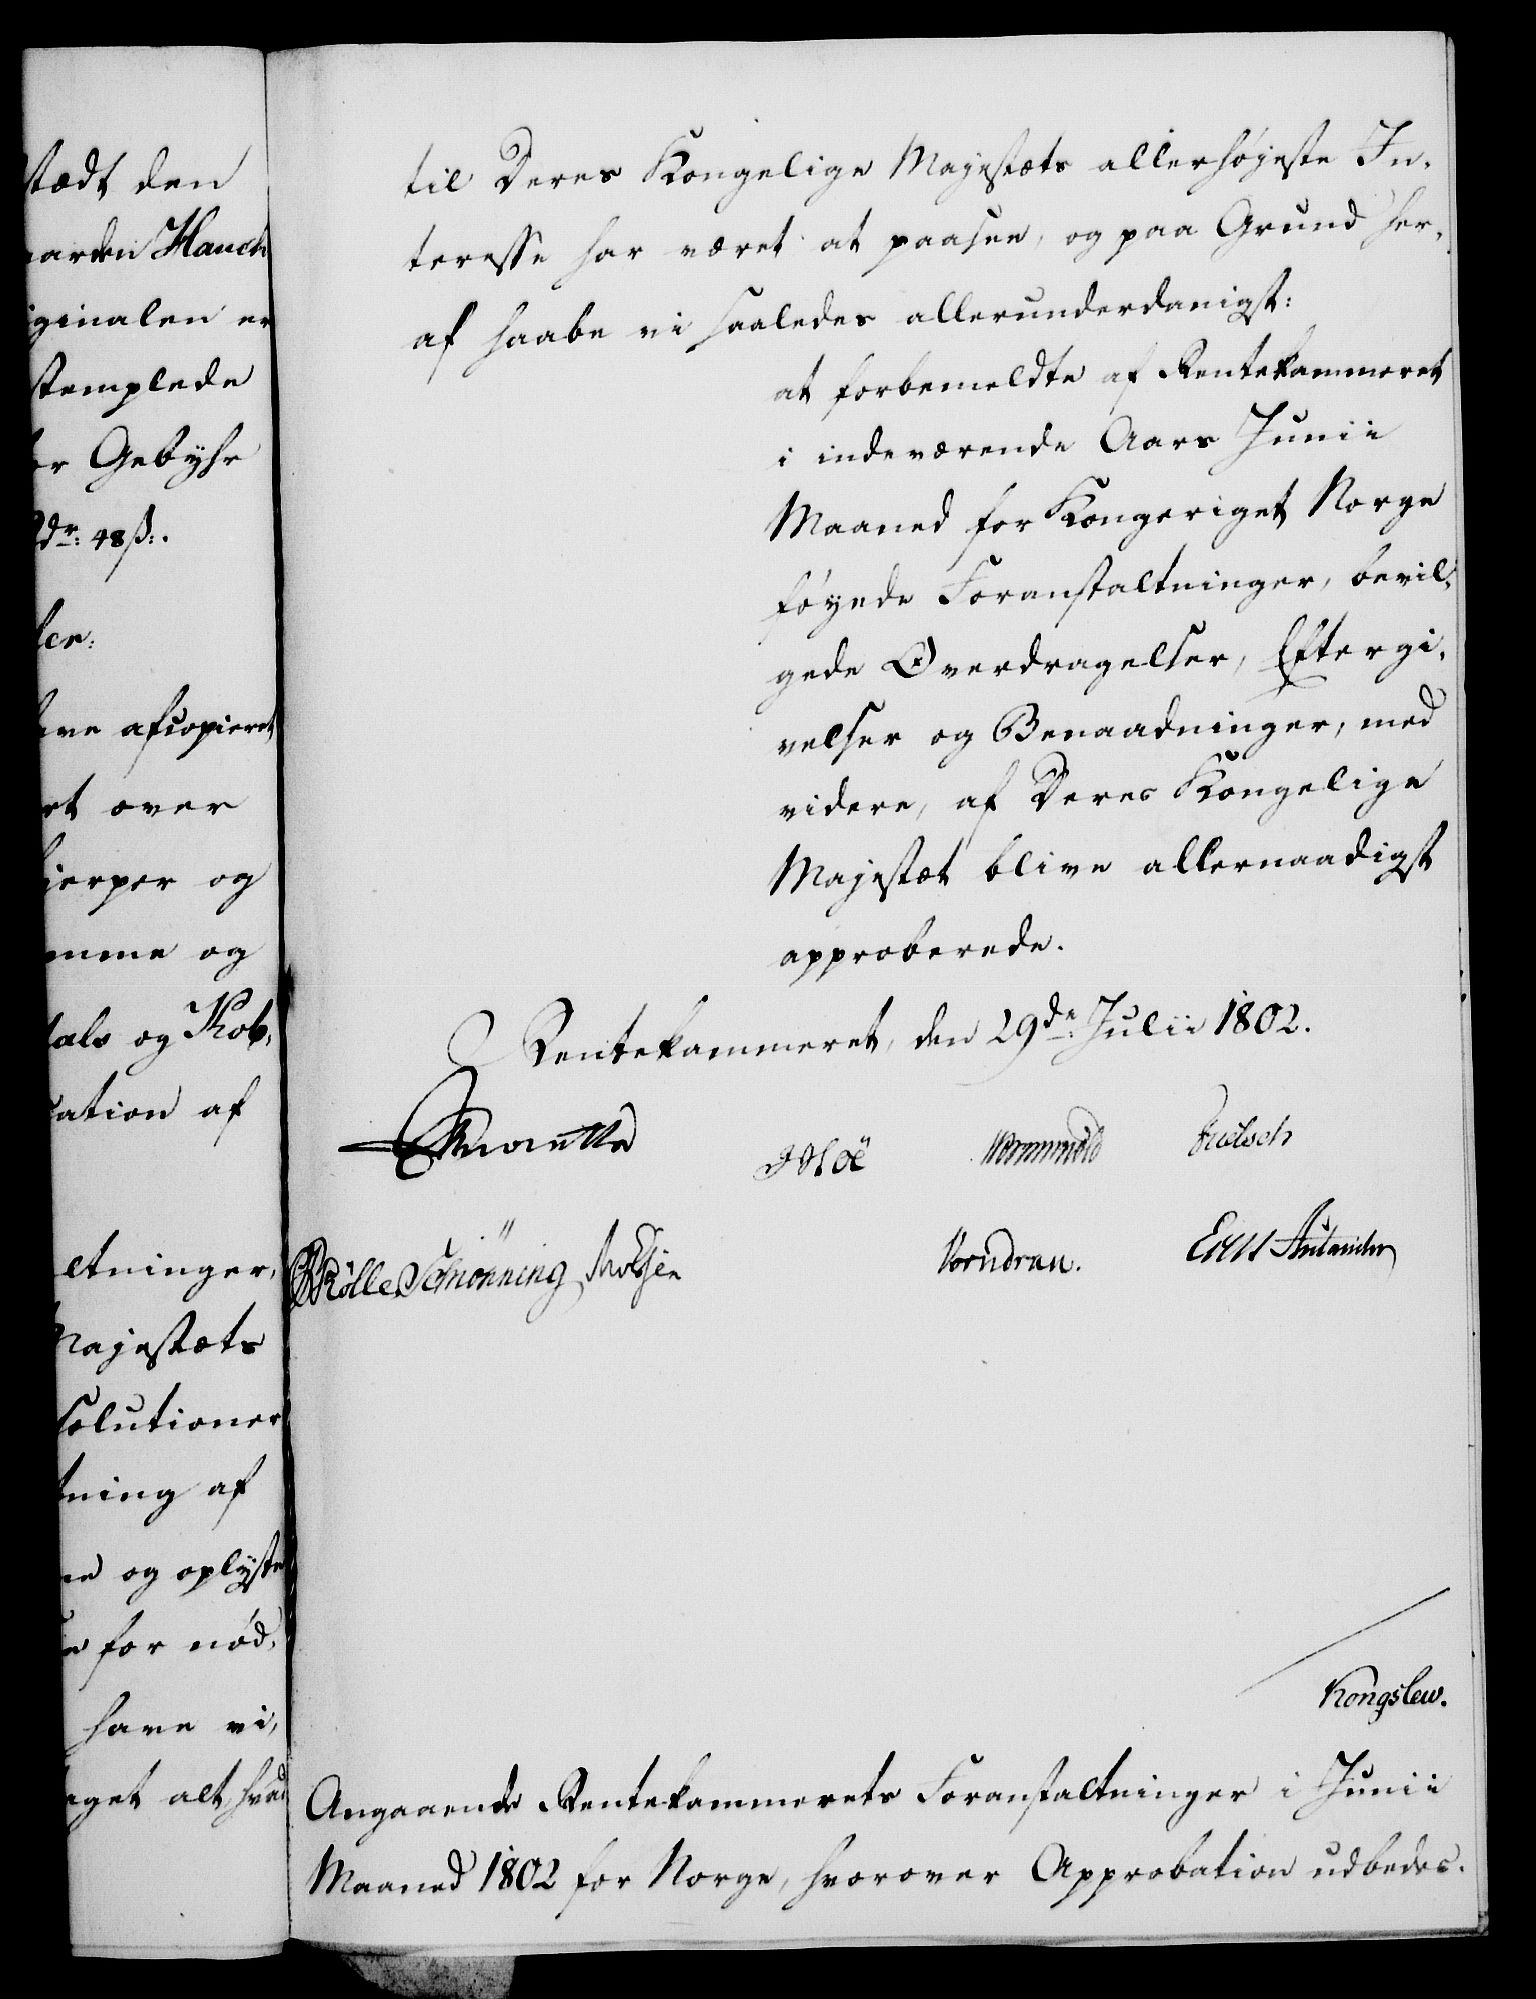 stædt den
aarden Hauch
iginalen er
stemplede
er Gebyhr
dr: 48 ß:.
ler:
ve afcopieret
rt over
ierper og
mme og
tals og Kob,
cation af
ltninger,
Majestæts
solutioner
tning af
ne og oplyste
for nød,
have vi,
aget alt, hvad
til Deres Kongelige Majestæts allerhøjeste In-
teresse har været at paasee, og paa Grund her-
af haabe vi saaledes allerunderdanigst:
at forbemeldte af Rentekammeret
i indeværende Aars Junii
Maaned for Kongeriget Norge
føyede Foranstaltninger, bevil-
gede Overdragelser, Eftergi-
velser og Benaadninger, med
videre, af Deres Kongelige
Majestæt blive allernaadigst
approberede.
Rentekammeret, den 29de Julii 1802.
Wormskiold
Vorndran.
Schiönning
Kongslew.
Angaaende Rentekammerets Foranstaltninger i Junii
Maaned 1802 for Norge, hvorover Approbation udbedes.